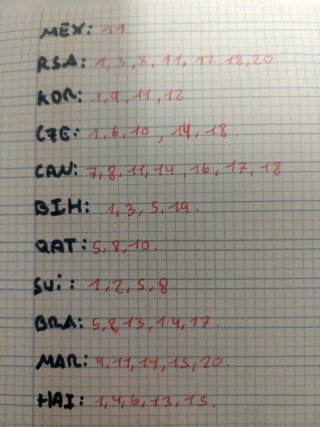 MEX: 11
RSA: 1, 3, 8, 11, 17, 18, 20
KOR: 1, 9, 11, 12
CZE: 1, 6, 10, 14, 18.
CAN: 7, 8, 11, 14, 16, 17, 18
BIH: 1, 3, 5, 19.
QAT: 5, 8, 10.
SUi: 1, 2, 5, 8
BRA: 5, 8, 13, 14, 17.
MAR: 4, 11, 14, 15, 20.
HAI: 1, 4, 6, 13, 15.